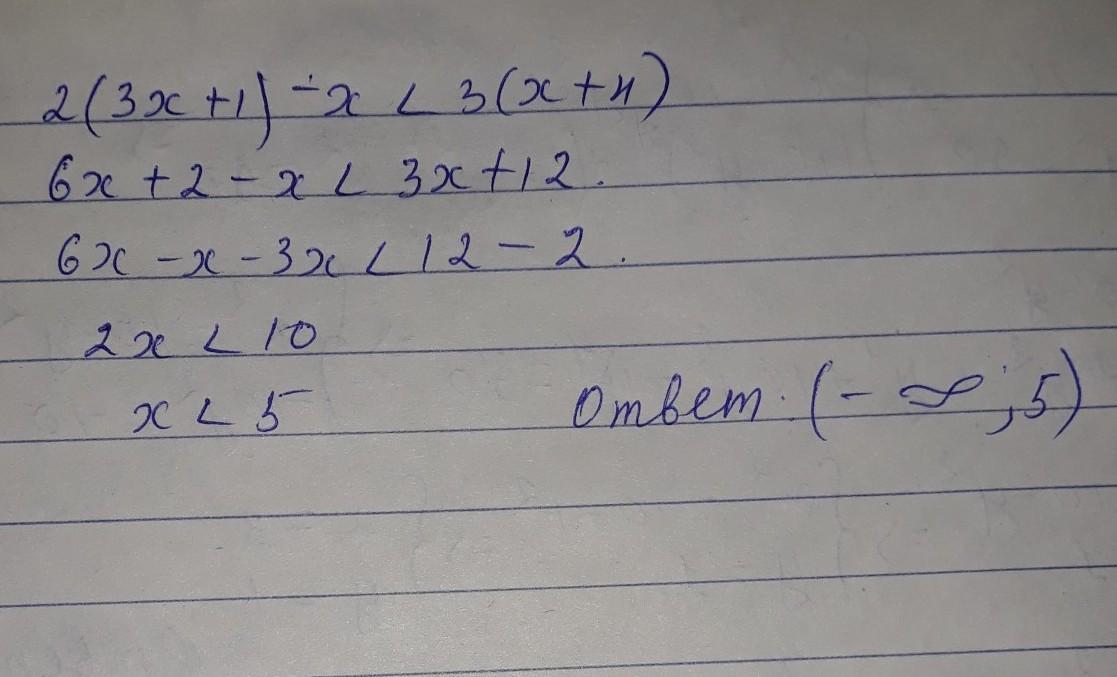 2(3x+1)-x < 3(x+4)
6x+2-x < 3x+12.
6x-x-3x < 12-2.
2x < 10
x < 5 Ответ: (-∞;5)